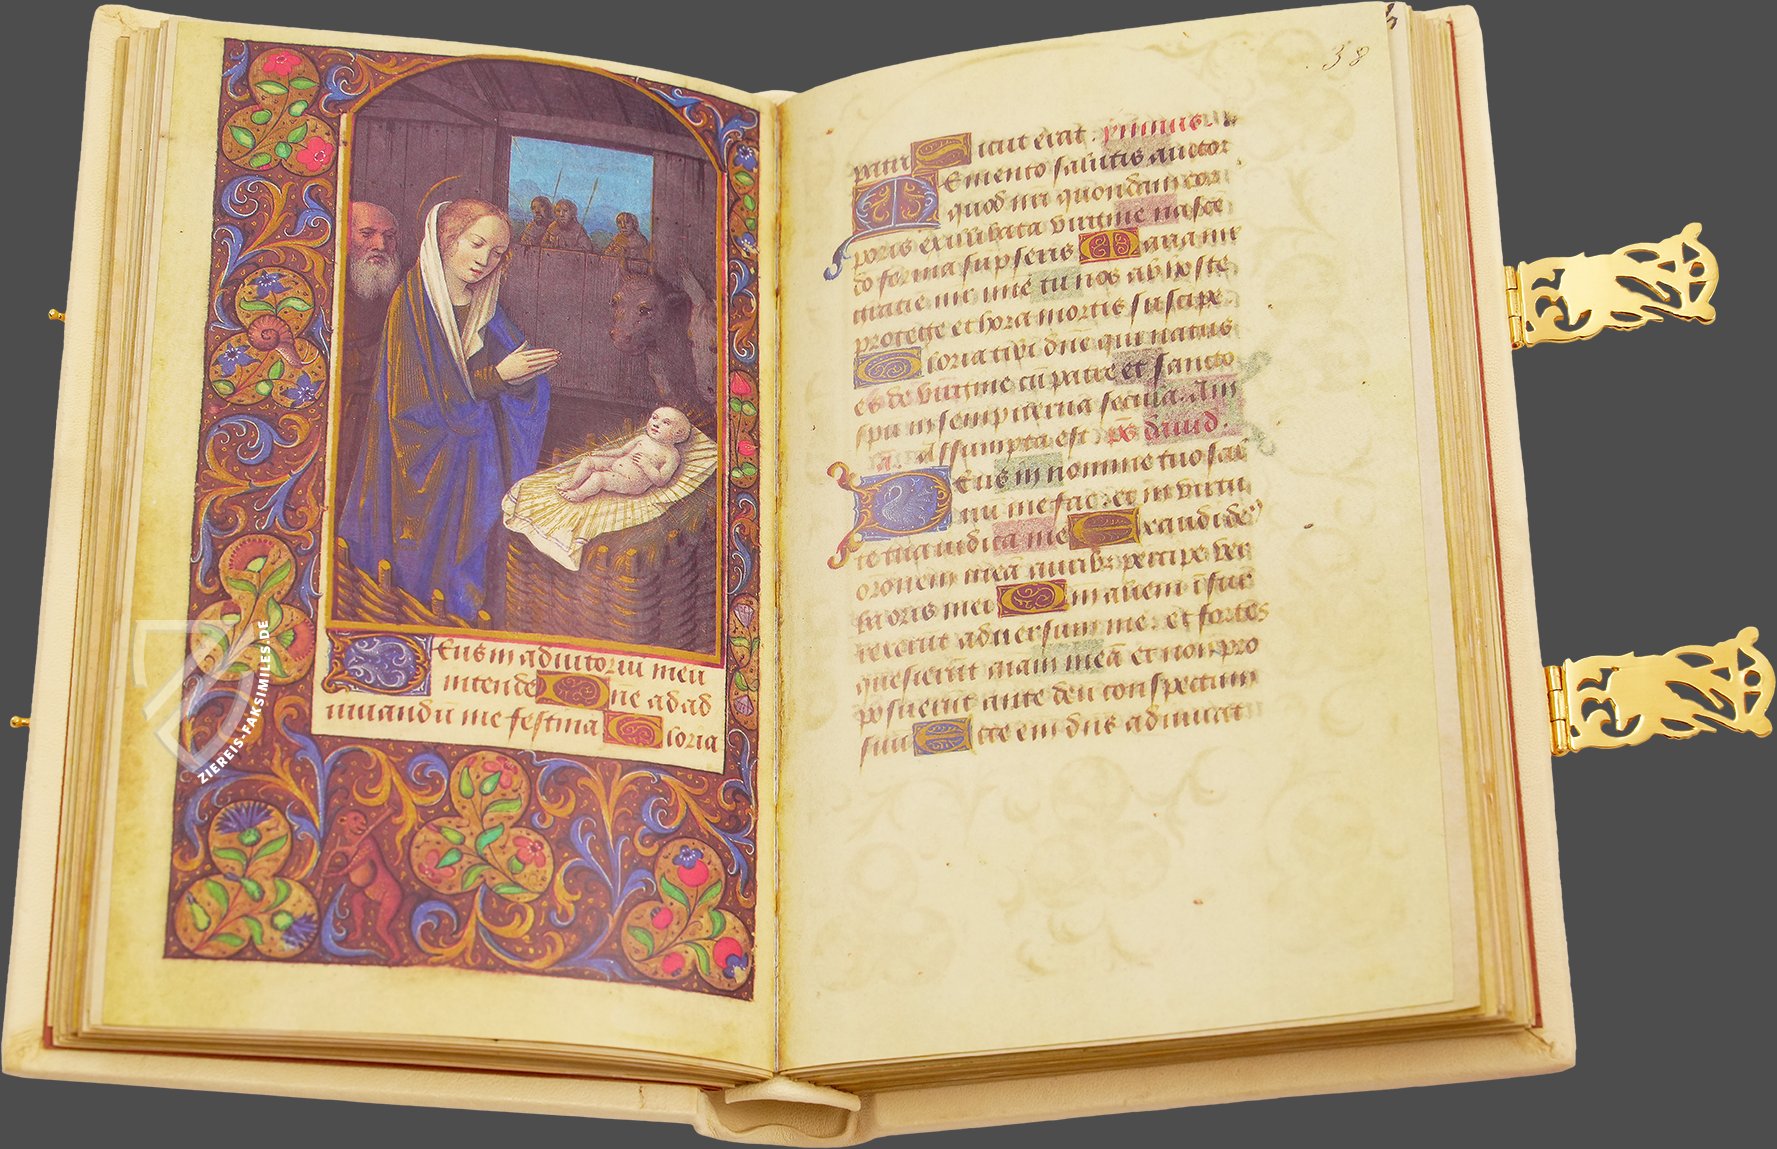 Eus in adiutoriu meu
intende Ne ad ad
iuuandu me festina Gloria
ZIEREIS-FAKSIMILES.DE
38
patri Sicut erat. ymnus.
Memento salutis auctor
quod nri quondam cor
poris ex illibata virgine nasce
do formā supseris Maria mr
gratie mr mie tu nos ab hoste
protege et hora mortis suscipe.
Gloria tibi dn̄e qui natus
es de virgine cū patre et sancto
spū in sempiterna secula. Am
an. Assumpta est ps dauid.
Deus in nomine tuo sal
uū me fac: et in virtu
te tua iudica me Exaudi de9
oronem meā auribꝫ percipe ver
ba oris mei Qm alieni īsur
rexerūt aduersum me: et fortes
quesierūt aiam meā et non pro
posuerūt ante deū conspectum
suū Ecce em̄ dūs adiuuat